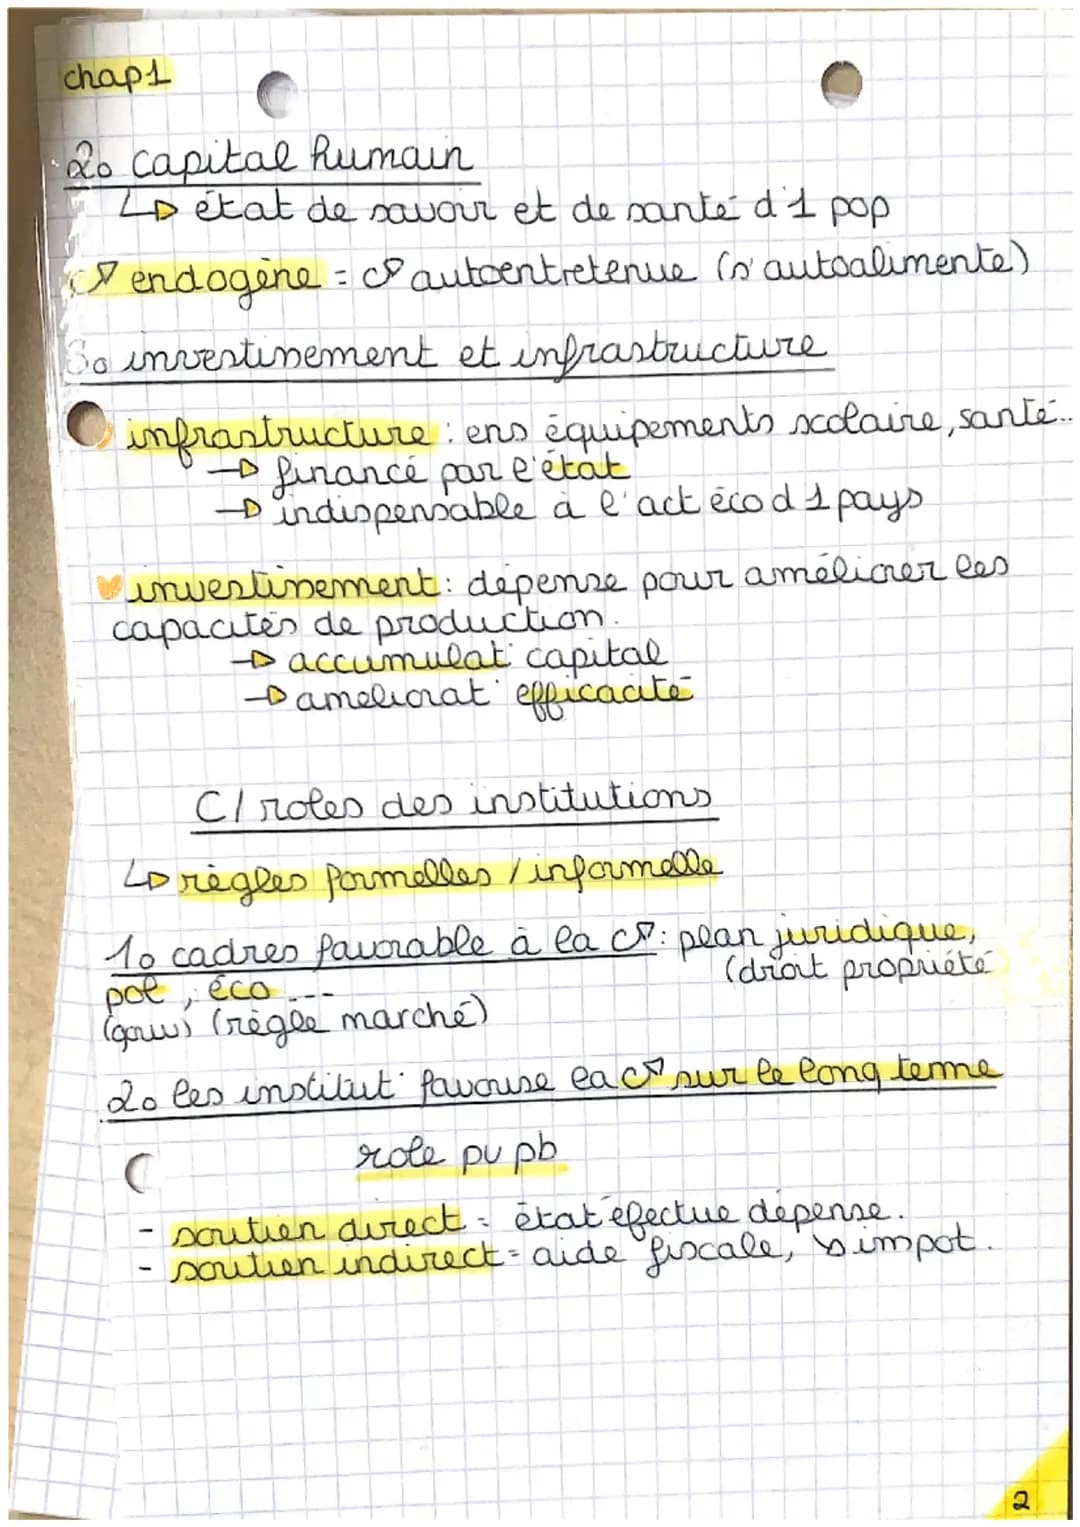 chap1
2o capital humain
↳ état de savoir et de santé d'1 pop
c↗ endogène = c↗ autoentretenue (s'autoalimente)
3o investissement et infrastructure
infrastructure : ens équipements scolaire, santé...
→ financé par l'état
→ indispensable à l'act éco d 1 pays
investissement : dépense pour améliorer les
capacités de production.
→ accumulat° capital
→ ameliorat° efficacité
C/ roles des institutions
↳ règles formelles / informelle
1o cadres favorable à la c↗ : plan juridique,
(droit propriété
pol , éco ...
(gouv) (règle marché)
2o les institut° favorise la c↗ sur le long terme
role pv pb
- soutien direct = état éfectue dépense.
- soutien indirect = aide fiscale, ↘ impot.
2